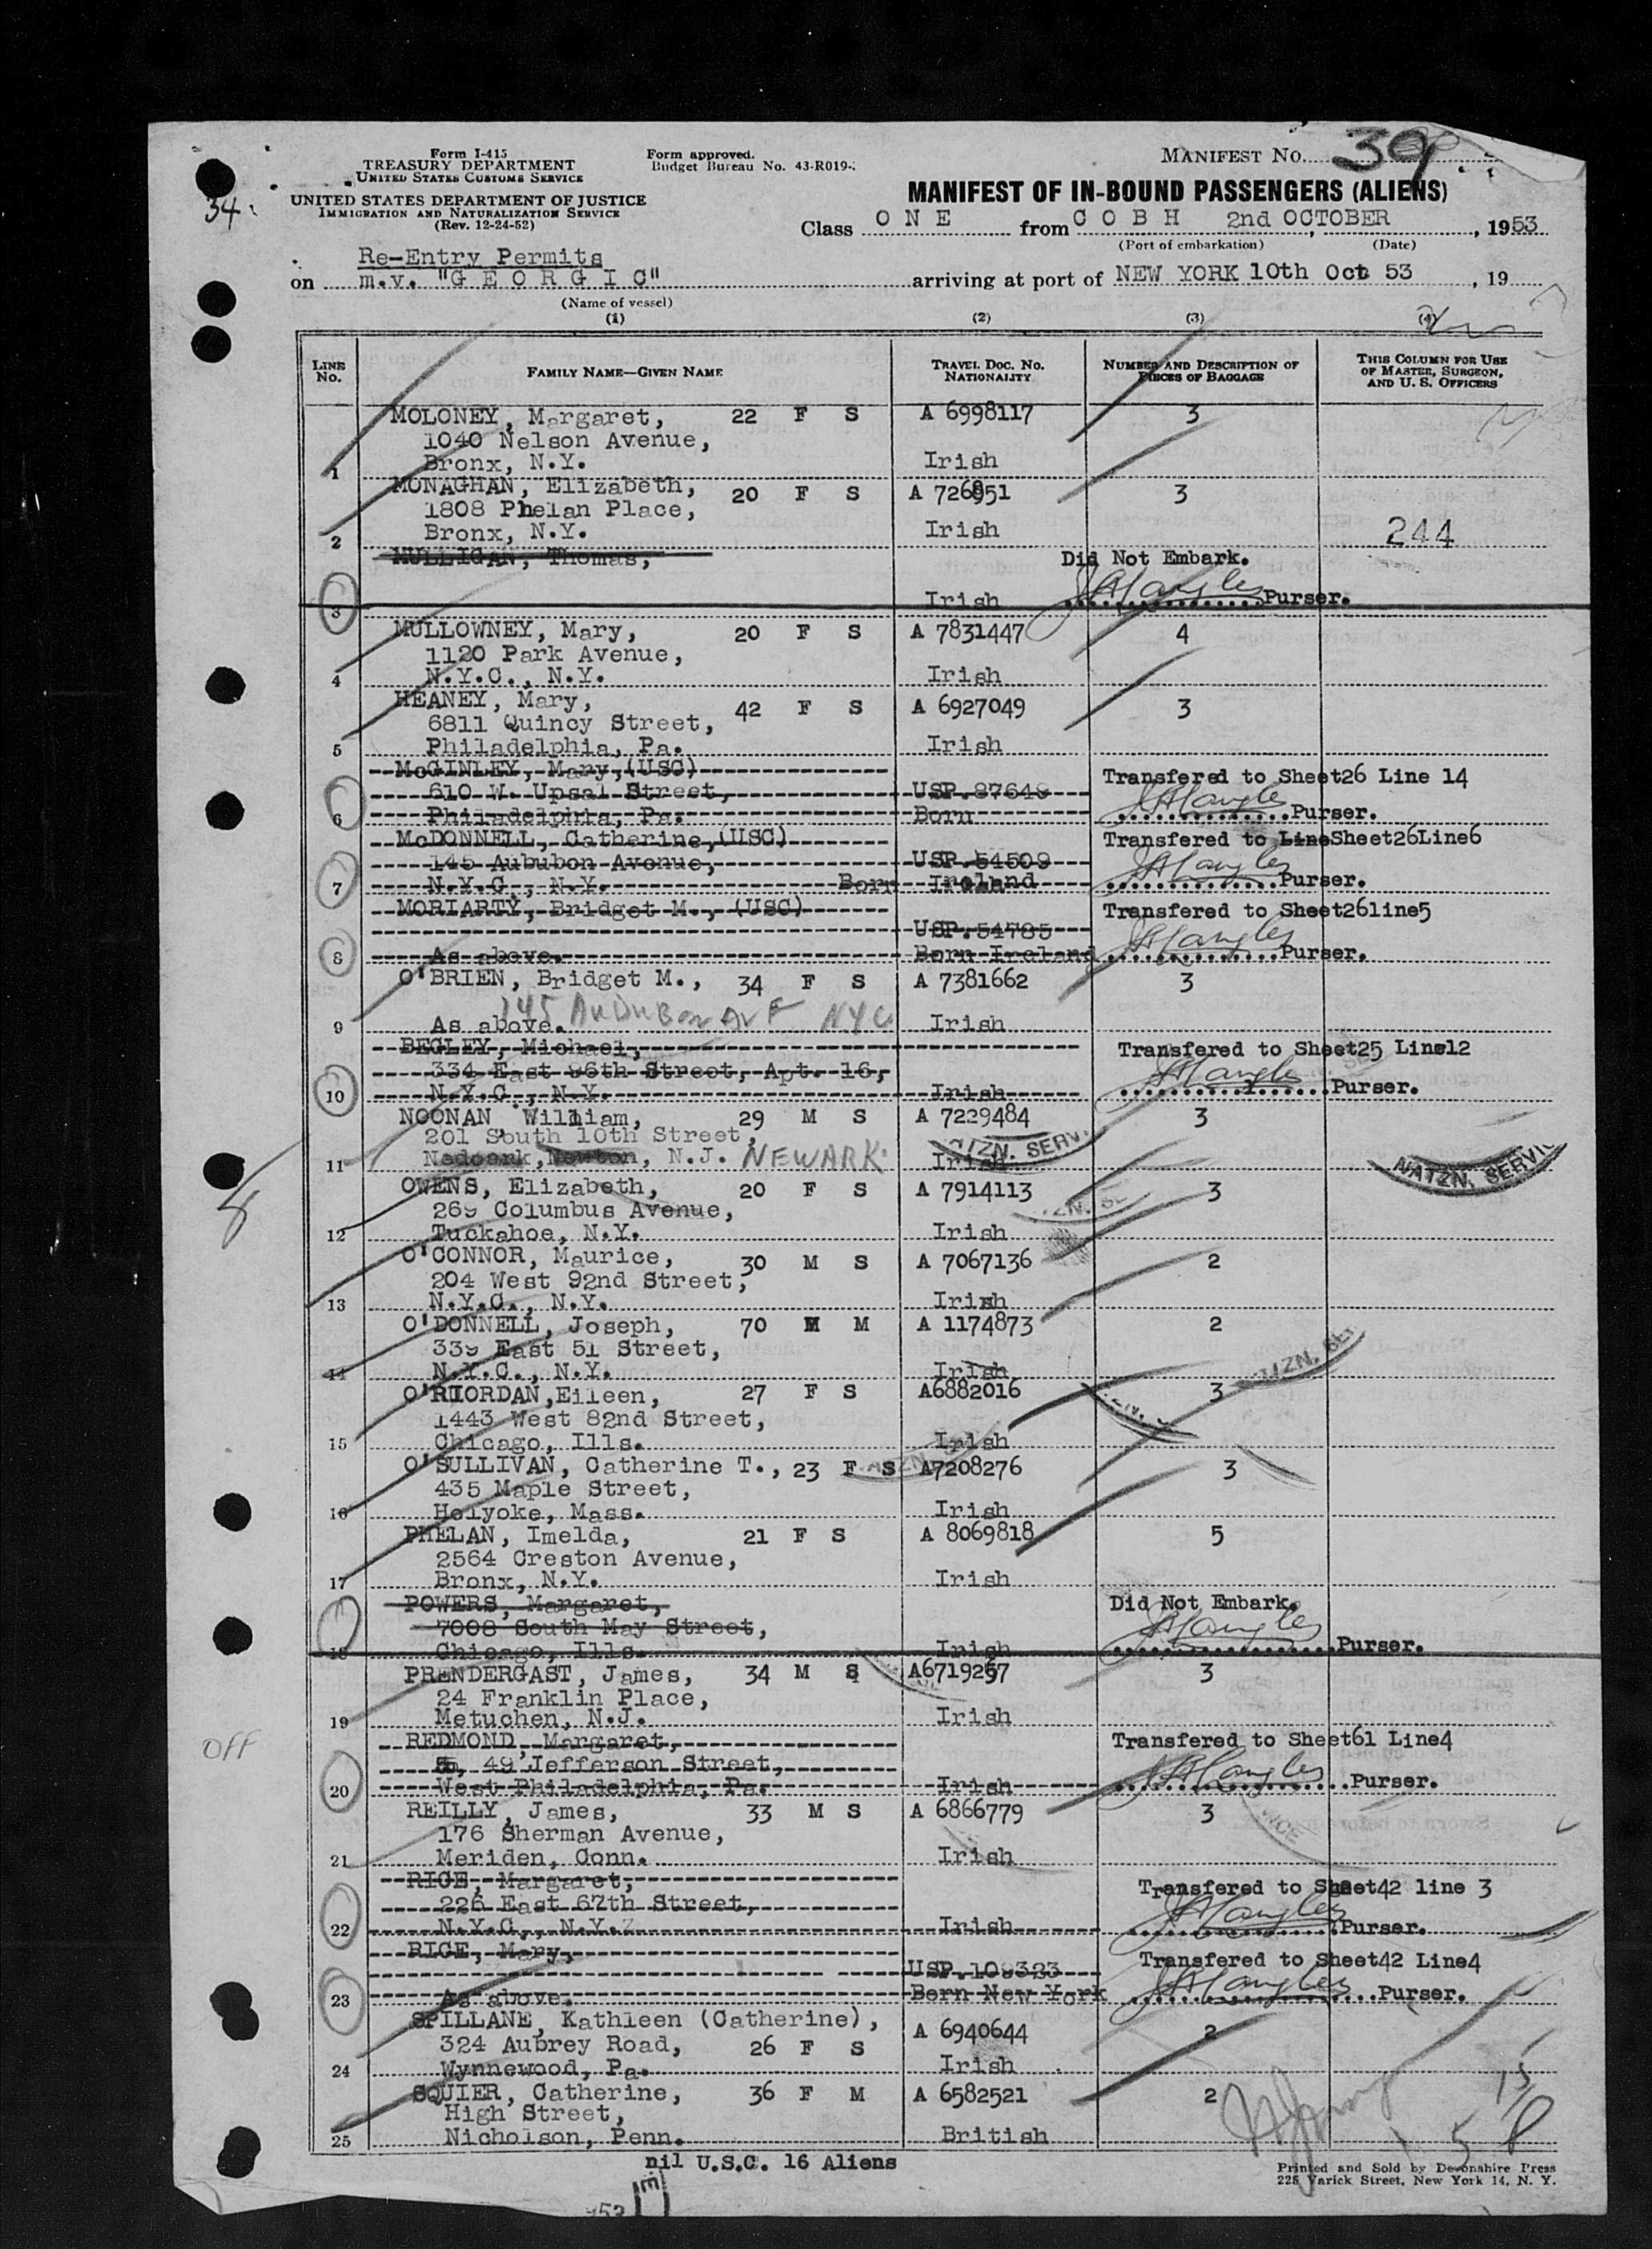 Form I-415
TREASURY DEPARTMENT
UNITED STATES CUSTOMS SERVICE
UNITED STATES DEPARTMENT OF JUSTICE
IMMIGRATION AND NATURALIZATION SERVICE
(Rev. 12-24-52)
Form approved.
Budget Bureau No. 43-R019-
MANIFEST No. 39
34
MANIFEST OF IN-BOUND PASSENGERS (ALIENS)
Class O N E from C O B H 2nd OCTOBER, 1953
(Port of embarkation) (Date)
Re-Entry Permits
on m.v. "G E O R G I C" arriving at port of NEW YORK 10th Oct 53, 19
(Name of vessel)
(1) (2) (3) (4)
LINE No. FAMILY NAME—GIVEN NAME TRAVEL DOC. NO. NATIONALITY NUMBER AND DESCRIPTION OF PIECES OF BAGGAGE THIS COLUMN FOR USE OF MASTER, SURGEON, AND U. S. OFFICERS
MOLONEY, Margaret, 22 F S A 6998117 3
1040 Nelson Avenue,
1 Bronx, N.Y. Irish
MONAGHAN, Elizabeth, 20 F S A 726951 3
1808 Phelan Place,
2 Bronx, N.Y. Irish 244
MULLIGAN, Thomas, Did Not Embark.
3 Irish Purser.
MULLOWNEY, Mary, 20 F S A 7831447 4
1120 Park Avenue,
4 N.Y.C., N.Y. Irish
HEANEY, Mary, 42 F S A 6927049 3
6811 Quincy Street,
5 Philadelphia, Pa. Irish
McGINLEY, Mary,(USC) Transfered to Sheet26 Line 14
610 W. Upsal Street, USP.87648
6 Philadelphia, Pa. Born Purser.
McDONNELL, Catherine,(USC) Transfered to LineSheet26Line6
145 Aububon Avenue, USP.54509
7 N.Y.C., N.Y. Born Ireland Purser.
MORIARTY, Bridget M., (USC) Transfered to Sheet26line5
USP.54785
8 As above. Born Ireland Purser.
O'BRIEN, Bridget M., 34 F S A 7381662 3
145 AUDUBON AVE NYC
9 As above. Irish
BEGLEY, Michael, Transfered to Sheet25 Line12
334 East 96th Street, Apt. 16,
10 N.Y.C., N.Y. Irish Purser.
NOONAN William, 29 M S A 7229484 3
201 South 10th Street,
11 Nedoark, Newton, N.J. NEWARK Irish
NATZN. SERV.
NATZN. SERVIC
OWENS, Elizabeth, 20 F S A 7914113 3
269 Columbus Avenue,
12 Tuckahoe, N.Y. Irish
O'CONNOR, Maurice, 30 M S A 7067136 2
204 West 92nd Street,
13 N.Y.C., N.Y. Irish
O'DONNELL, Joseph, 70 M M A 1174873 2
339 East 51 Street,
14 N.Y.C., N.Y. Irish
O'RIORDAN,Eileen, 27 F S A6882016 3
1443 West 82nd Street,
15 Chicago, Ills. Irish
O'SULLIVAN, Catherine T., 23 F S A7208276 3
435 Maple Street,
16 Holyoke, Mass. Irish
PHELAN, Imelda, 21 F S A 8069818 5
2564 Creston Avenue,
17 Bronx, N.Y. Irish
POWERS, Margaret, Did Not Embark.
7008 South May Street,
18 Chicago, Ills. Irish Purser.
PRENDERGAST, James, 34 M S A6719267 3
24 Franklin Place,
19 Metuchen, N.J. Irish
OFF
REDMOND, Margaret, Transfered to Sheet61 Line4
49 Jefferson Street,
20 West Philadelphia, Pa. Irish Purser.
REILLY, James, 33 M S A 6866779 3
176 Sherman Avenue,
21 Meriden, Conn. Irish
RICE, Margaret, Transfered to Sheet42 line 3
226 East 67th Street,
22 N.Y.C., N.Y. Irish Purser.
RICE, Mary, Transfered to Sheet42 Line4
USP.109323
23 As above. Born New York Purser.
SPILLANE, Kathleen (Catherine), A 6940644 2
324 Aubrey Road, 26 F S
24 Wynnewood, Pa. Irish
SQUIER, Catherine, 36 F M A 6582521 2
High Street,
25 Nicholson, Penn. British
nil U.S.C. 16 Aliens
Printed and Sold by Devonshire Press
225 Varick Street, New York 14, N. Y.